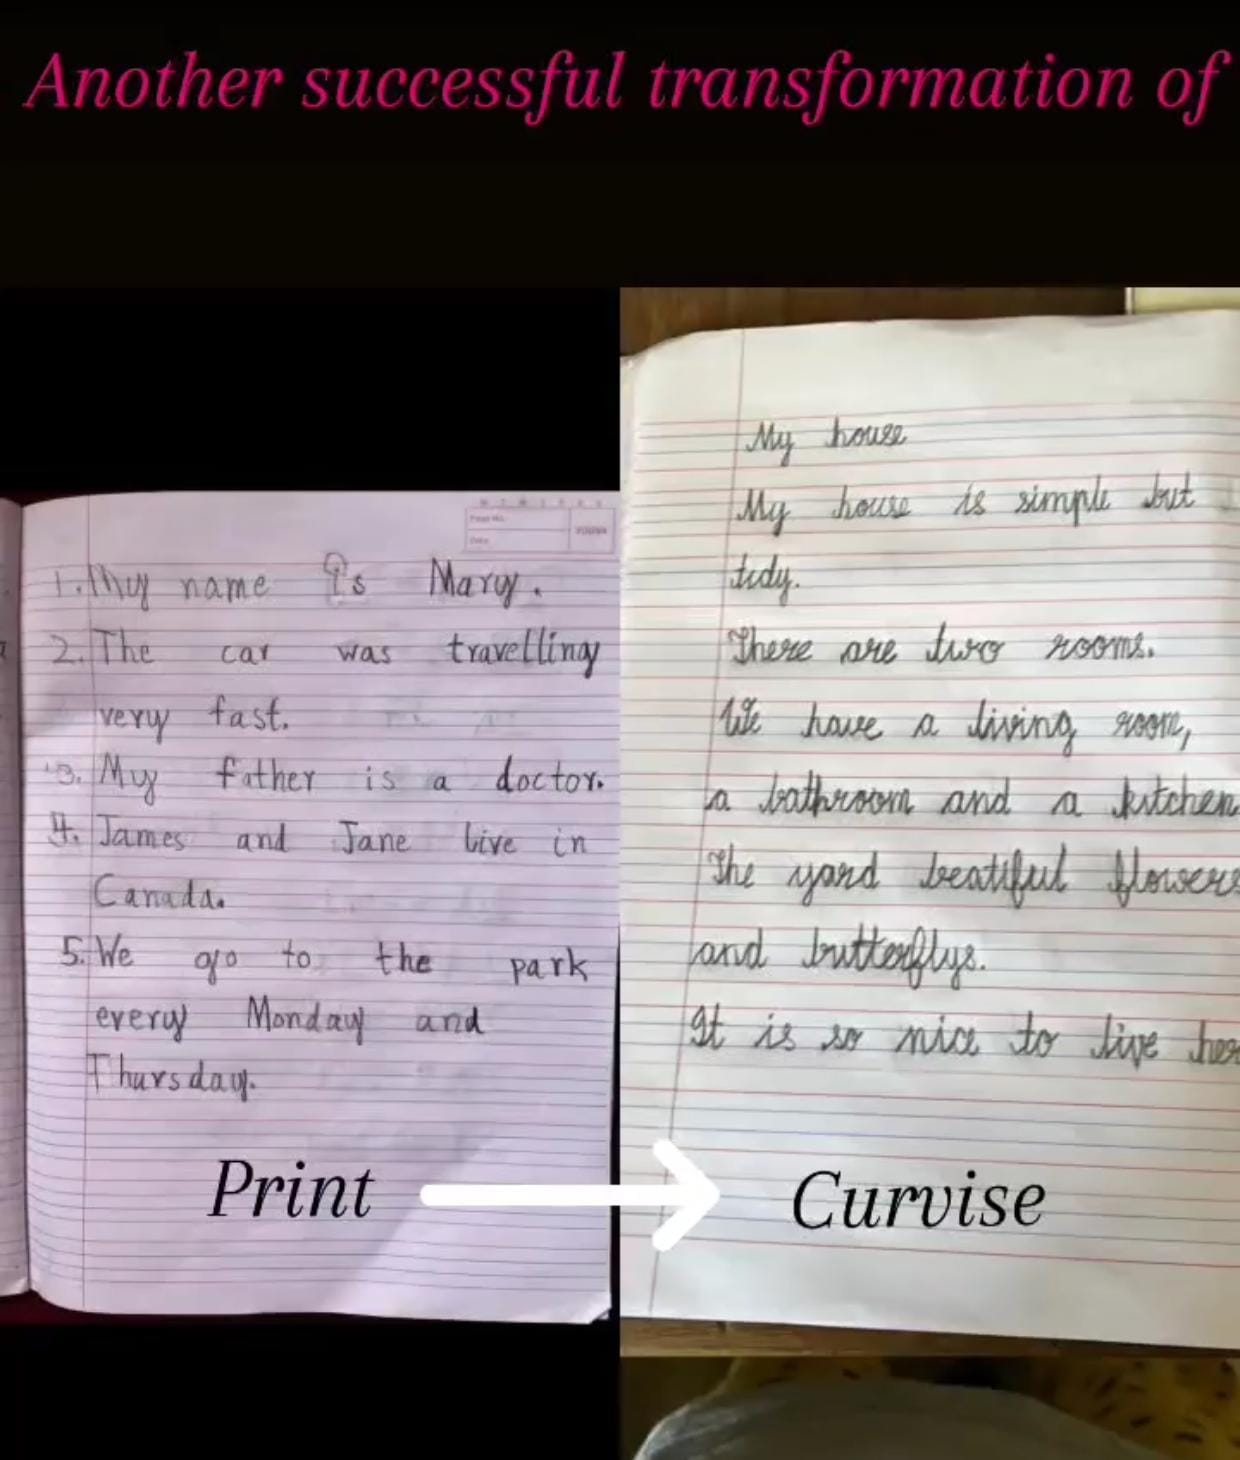 Another successful transformation of
1. My name is Mary.
2. The car was travelling
very fast.
3. My father is a doctor.
4. James and Jane live in
Canada.
5. We go to the park
every Monday and
Thursday.
Print
My house
My house is simple but
tidy.
There are two rooms.
We have a living room,
a bathroom and a kitchen
The yard beatiful flowers
and butterflys.
It is so nice to live her
Curvise